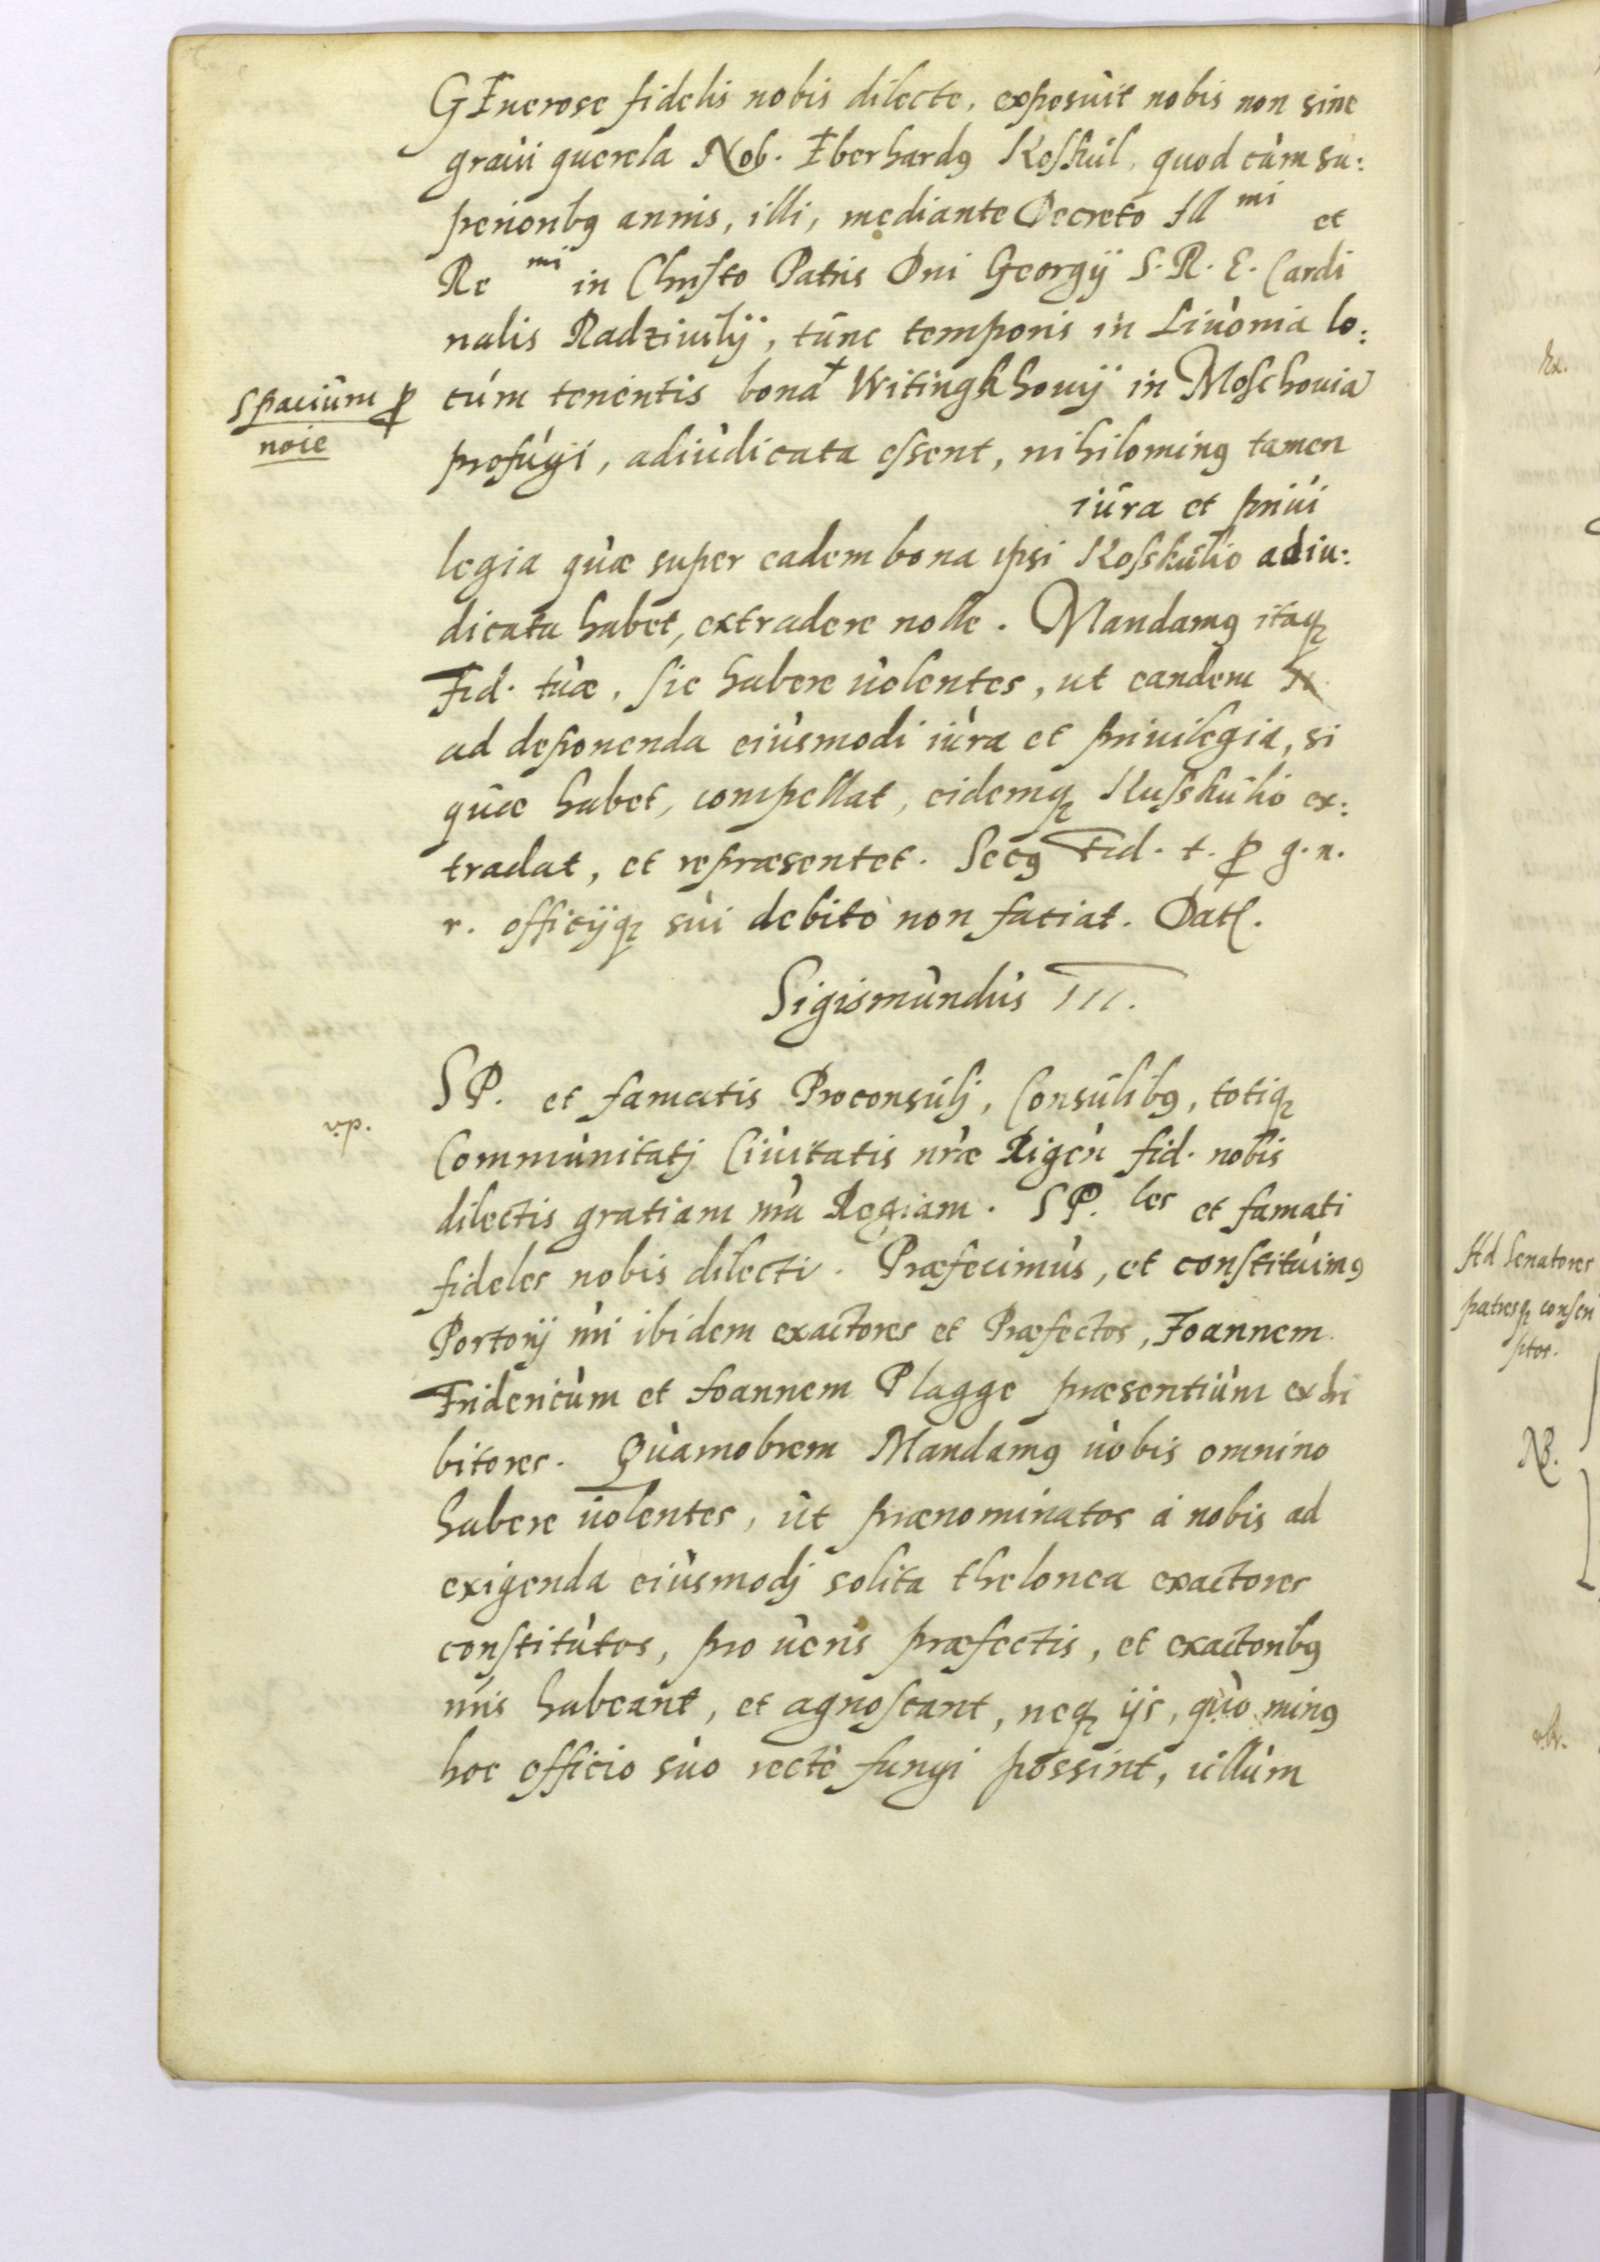 GEnerose fidelis nobis dilecte, exposuit nobis non sine
graui querela Nob. Eberhardꝰ Koskul, quod cùm su:
perioribꝰ annis, illi, mediante Decreto Ill mi et
Re mi in Christo Patris Dni Georgij S. R. E. Cardi
nalis Radziuilij, tunc temporis in Liuonia lo:
spacium ꝓ
noie
cum tenentis bona + Witingkhouij in Moschouia
profugi, adiudicata essent, nihilominꝰ tamen
iura et priui
legia quæ super eadem bona ipsi Kosskulio adiu:
dicata habet, extradere nolle. Mandamꝰ itaqꝫ
Fid. tuæ, sic habere uolentes, ut eandem
ad deponenda eiusmodi iura et priuilegia, si
quæ habet, compellat, eidemqꝫ Kusskulio ex:
tradat, et repræsentet. Secꝰ Fid. t. ꝓ g. n.
r. officijqꝫ sui debito non faciat. Dat.
Sigismundus III.
v.p.
SP. et famatis Proconsulj, Consulibꝰ, totiqꝫ
Communitatj Ciuitatis nræ Rigen fid. nobis
dilectis gratiam nra Regiam. SP. les et famati
fideles nobis dilecti. Præfecimus, et constituimꝰ
Portorij nri ibidem exactores et Præfectos, Joannem
Fridericum et Joannem Plagge præsentium exhi
bitores. Quamobrem Mandamꝰ uobis omnino
habere uolentes, ut prænominatos à nobis ad
exigenda eiusmodj solita thelonea exactores
constitutos, pro ueris præfectis, et exactoribꝰ
nris habeant, et agnoscant, neqꝫ ijs, quo minꝰ
hoc officio suo rectè fungi possint, ullum
Ad Senatores
patresqꝫ conscri
ptos.
NB.